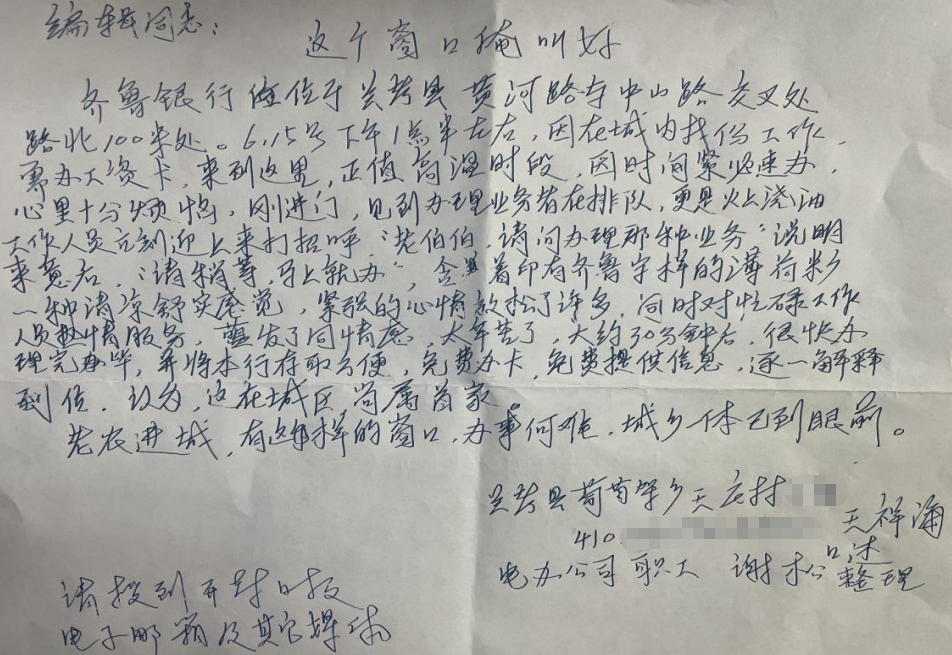 编辑同志：
这个窗口俺叫好
齐鲁银行座位于兰考县黄河路与中山路交叉处
路北100米处。6.15号下午1点半左右，因在城内找份工作，
需办工资卡，来到这里，正值高温时段，因时间紧必速办，
心里十分烦恼，刚进门，见到办理业务者在排队，更是火上浇油
工作人员立刻迎上来打招呼“老伯伯，请问办理那种业务”说明
来意后，“请稍等，马上就办”，含着印有齐鲁字样的薄荷糖
一种清凉舒实感觉，紧张的心情放松了许多，同时对忙碌工作
人员热情服务，萌发了同情感，太辛苦了，大约30分钟后，很快办
理完毕，并将本行存取方便，免费办卡，免费提供信息，逐一解释
到位，认为，这在城区，尚属首家。
老农进城，有这样的窗口，办事何难，城乡一体已到眼前。
兰考县葡萄架乡天庄村
王祥海
410
口述
电办公司职工 谢松 整理
请投到开封日报
电子邮箱及其它媒体